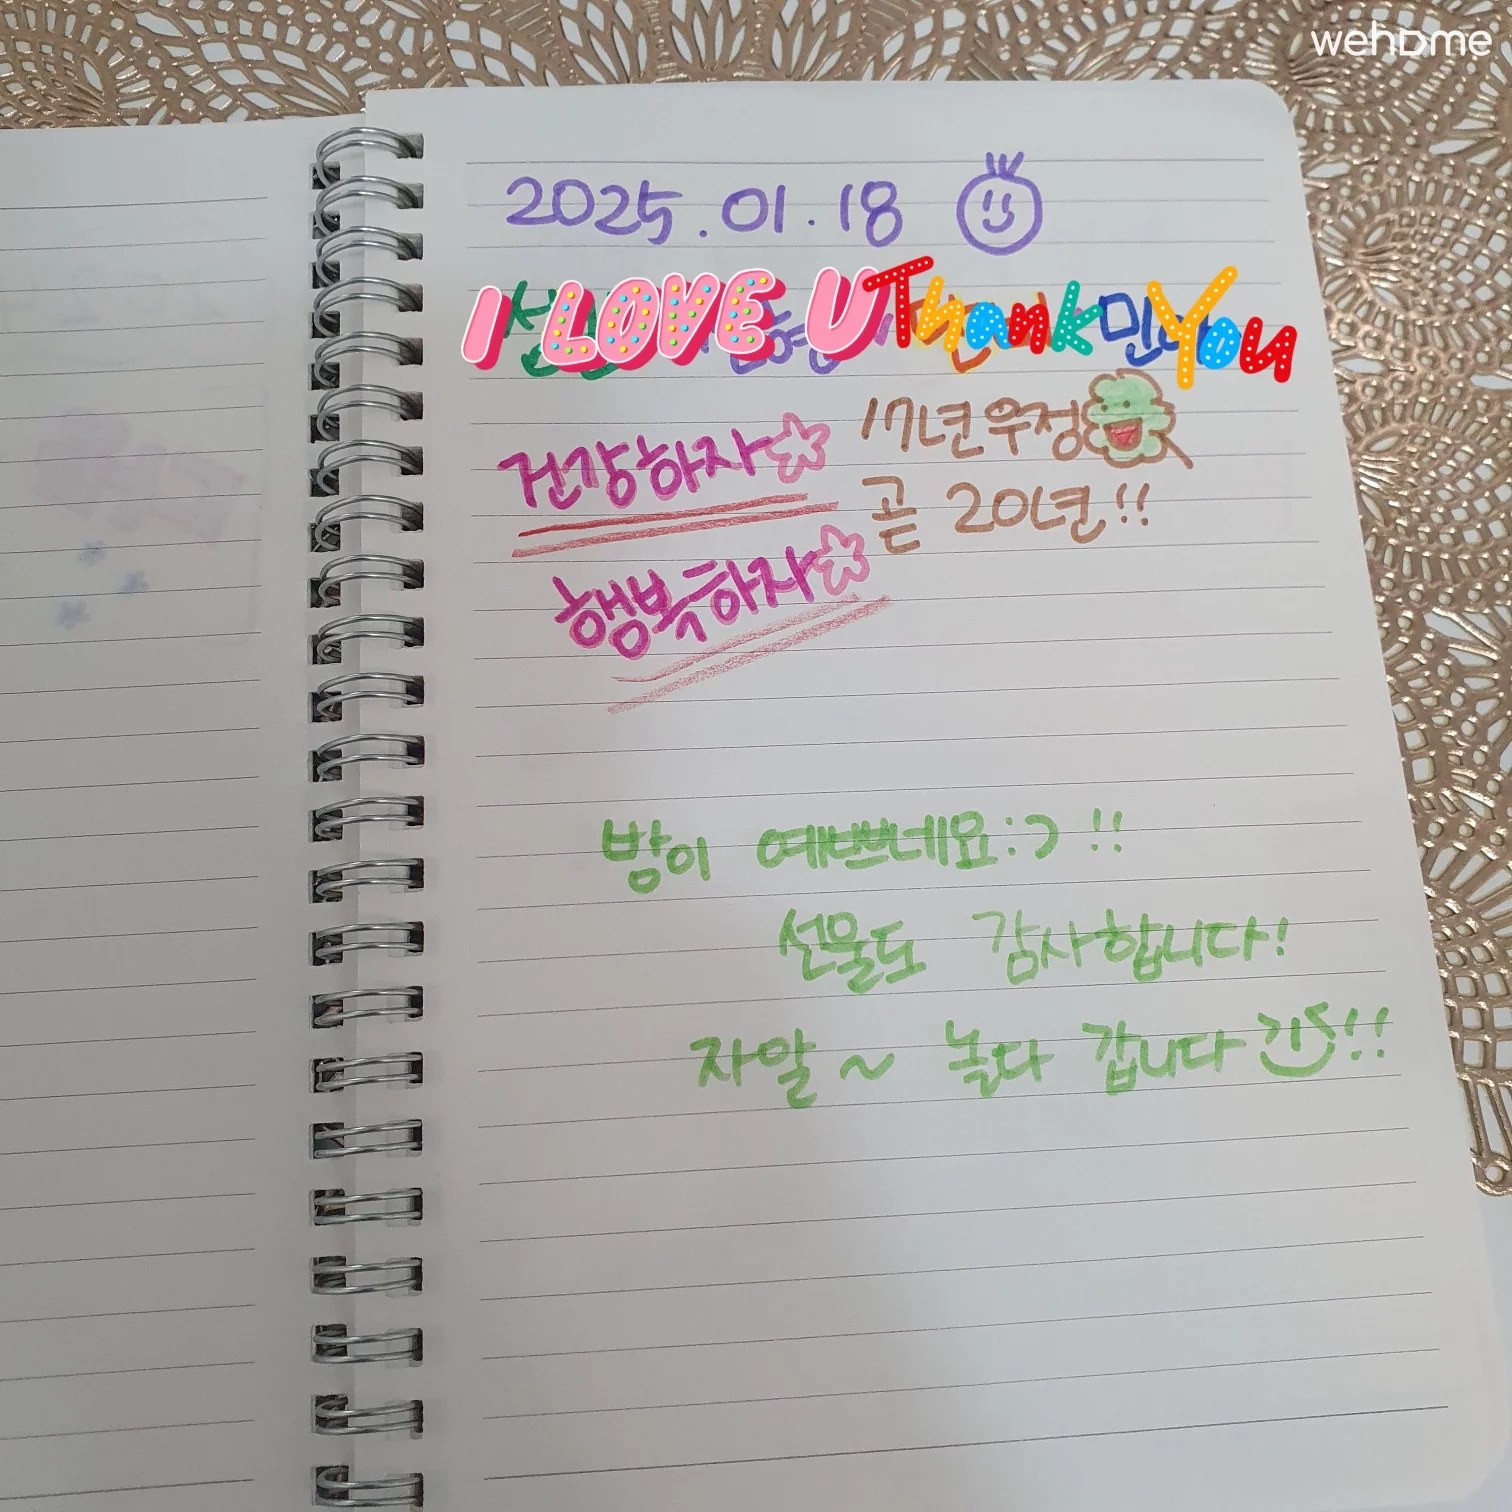 wehome
2025.01.18
I LOVE U Thank You
건강하자 17년우정
곧 20년!!
행복하자
방이 예쁘네요:) !!
선물도 감사합니다!
자알~ 놀다 갑니다!!